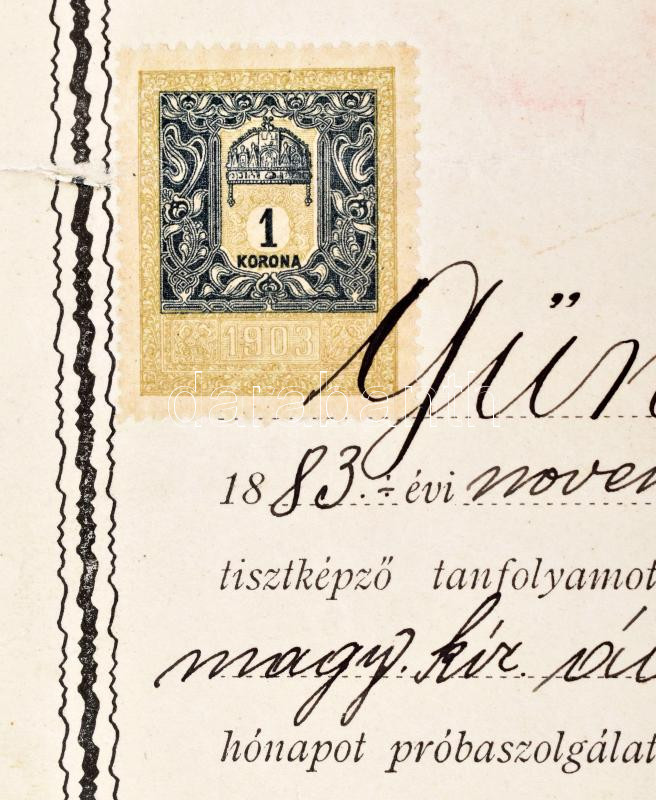 1
KORONA
1903
darabanth
Gün
1883.÷ évi novem
tisztképző tanfolyamot
magy. kir. ál
hónapot próbaszolgálat